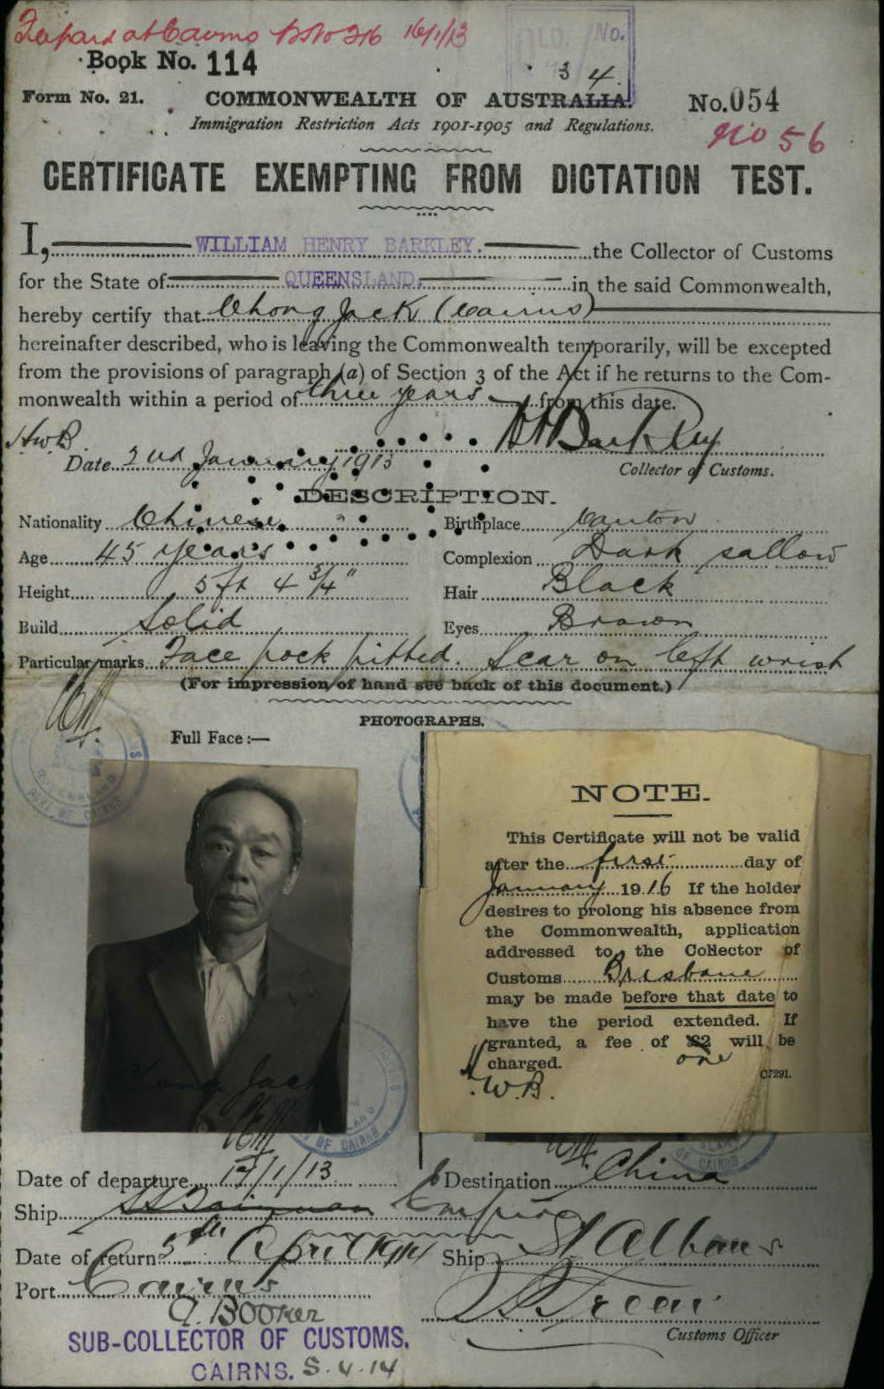 16/1/13
Book No. 114
3 4
Form No. 21. COMMONWEALTH OF AUSTRALIA. No. 054
Immigration Restriction Acts 1901-1905 and Regulations.
No 56
CERTIFICATE EXEMPTING FROM DICTATION TEST.
I, WILLIAM HENRY BARKLEY. the Collector of Customs
for the State of QUEENSLAND. in the said Commonwealth,
hereby certify that Chong Jack (Cairns)
hereinafter described, who is leaving the Commonwealth temporarily, will be excepted
from the provisions of paragraph (a) of Section 3 of the Act if he returns to the Com-
monwealth within a period of three years from this date.
WHBarkley
Date 2nd January 1913 Collector of Customs.
DESCRIPTION.
Nationality Chinese Birthplace Canton
Age 45 years Complexion Dark sallow
Height 5 ft 4 3/4" Hair Black
Build Solid Eyes Brown
Particular marks Face pock pitted. Scar on left wrist
(For impression of hand see back of this document.)
PHOTOGRAPHS.
Full Face :—
NOTE.
This Certificate will not be valid
after the first day of
January 1916 If the holder
desires to prolong his absence from
the Commonwealth, application
addressed to the Collector of
Customs Brisbane
may be made before that date to
have the period extended. If
granted, a fee of £2 will be
one
charged.
W.B.
C.7291.
Date of departure 17/1/13 Destination China
Ship SS Taiyuan Empire
Date of return 5th April 1914 Ship St Albans
Port Cairns
A. Booker
Customs Officer
SUB-COLLECTOR OF CUSTOMS.
CAIRNS. 5.4.14